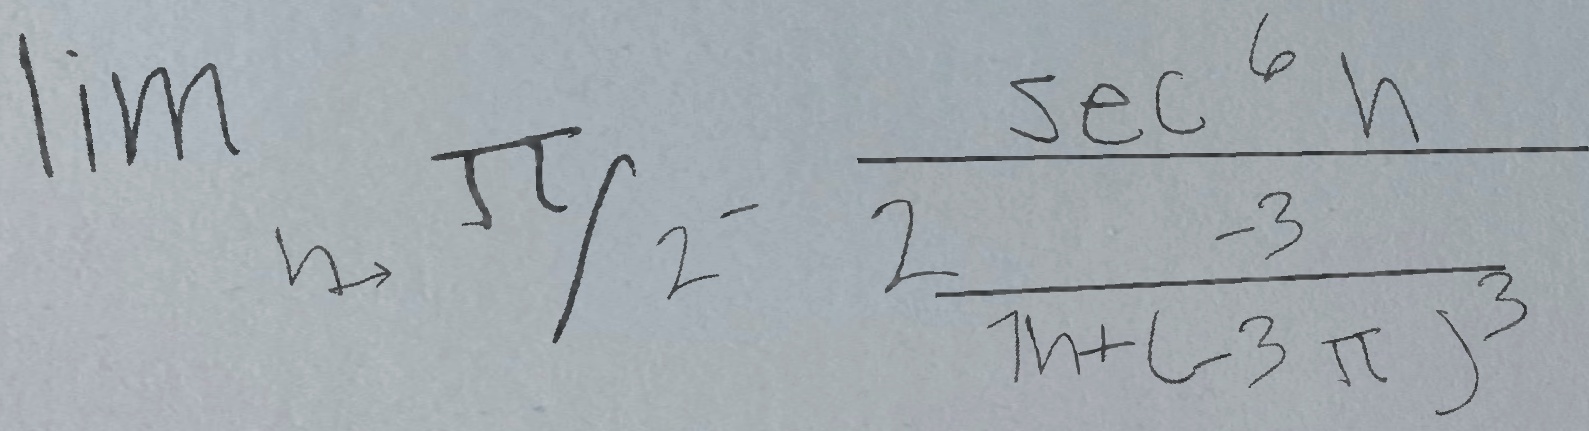 \lim_{h \to \pi/2^-} \frac{\sec^6 h}{2 \frac{-3}{7h + (-3\pi)^3}}